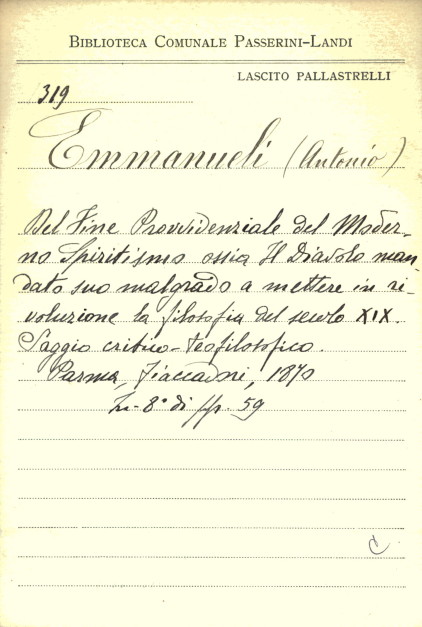 BIBLIOTECA COMUNALE PASSERINI-LANDI
LASCITO PALLASTRELLI
319
Emmanueli (Antonio)
Del Fine Provvidenziale del Moder-
no Spiritismo ossia Il Diavolo man
dato suo malgrado a mettere in ri-
voluzione la filosofia del secolo XIX.
Saggio critico-teofilosofico.
Parma, Fiaccadori, 1870
In-8° di pp. 59
C